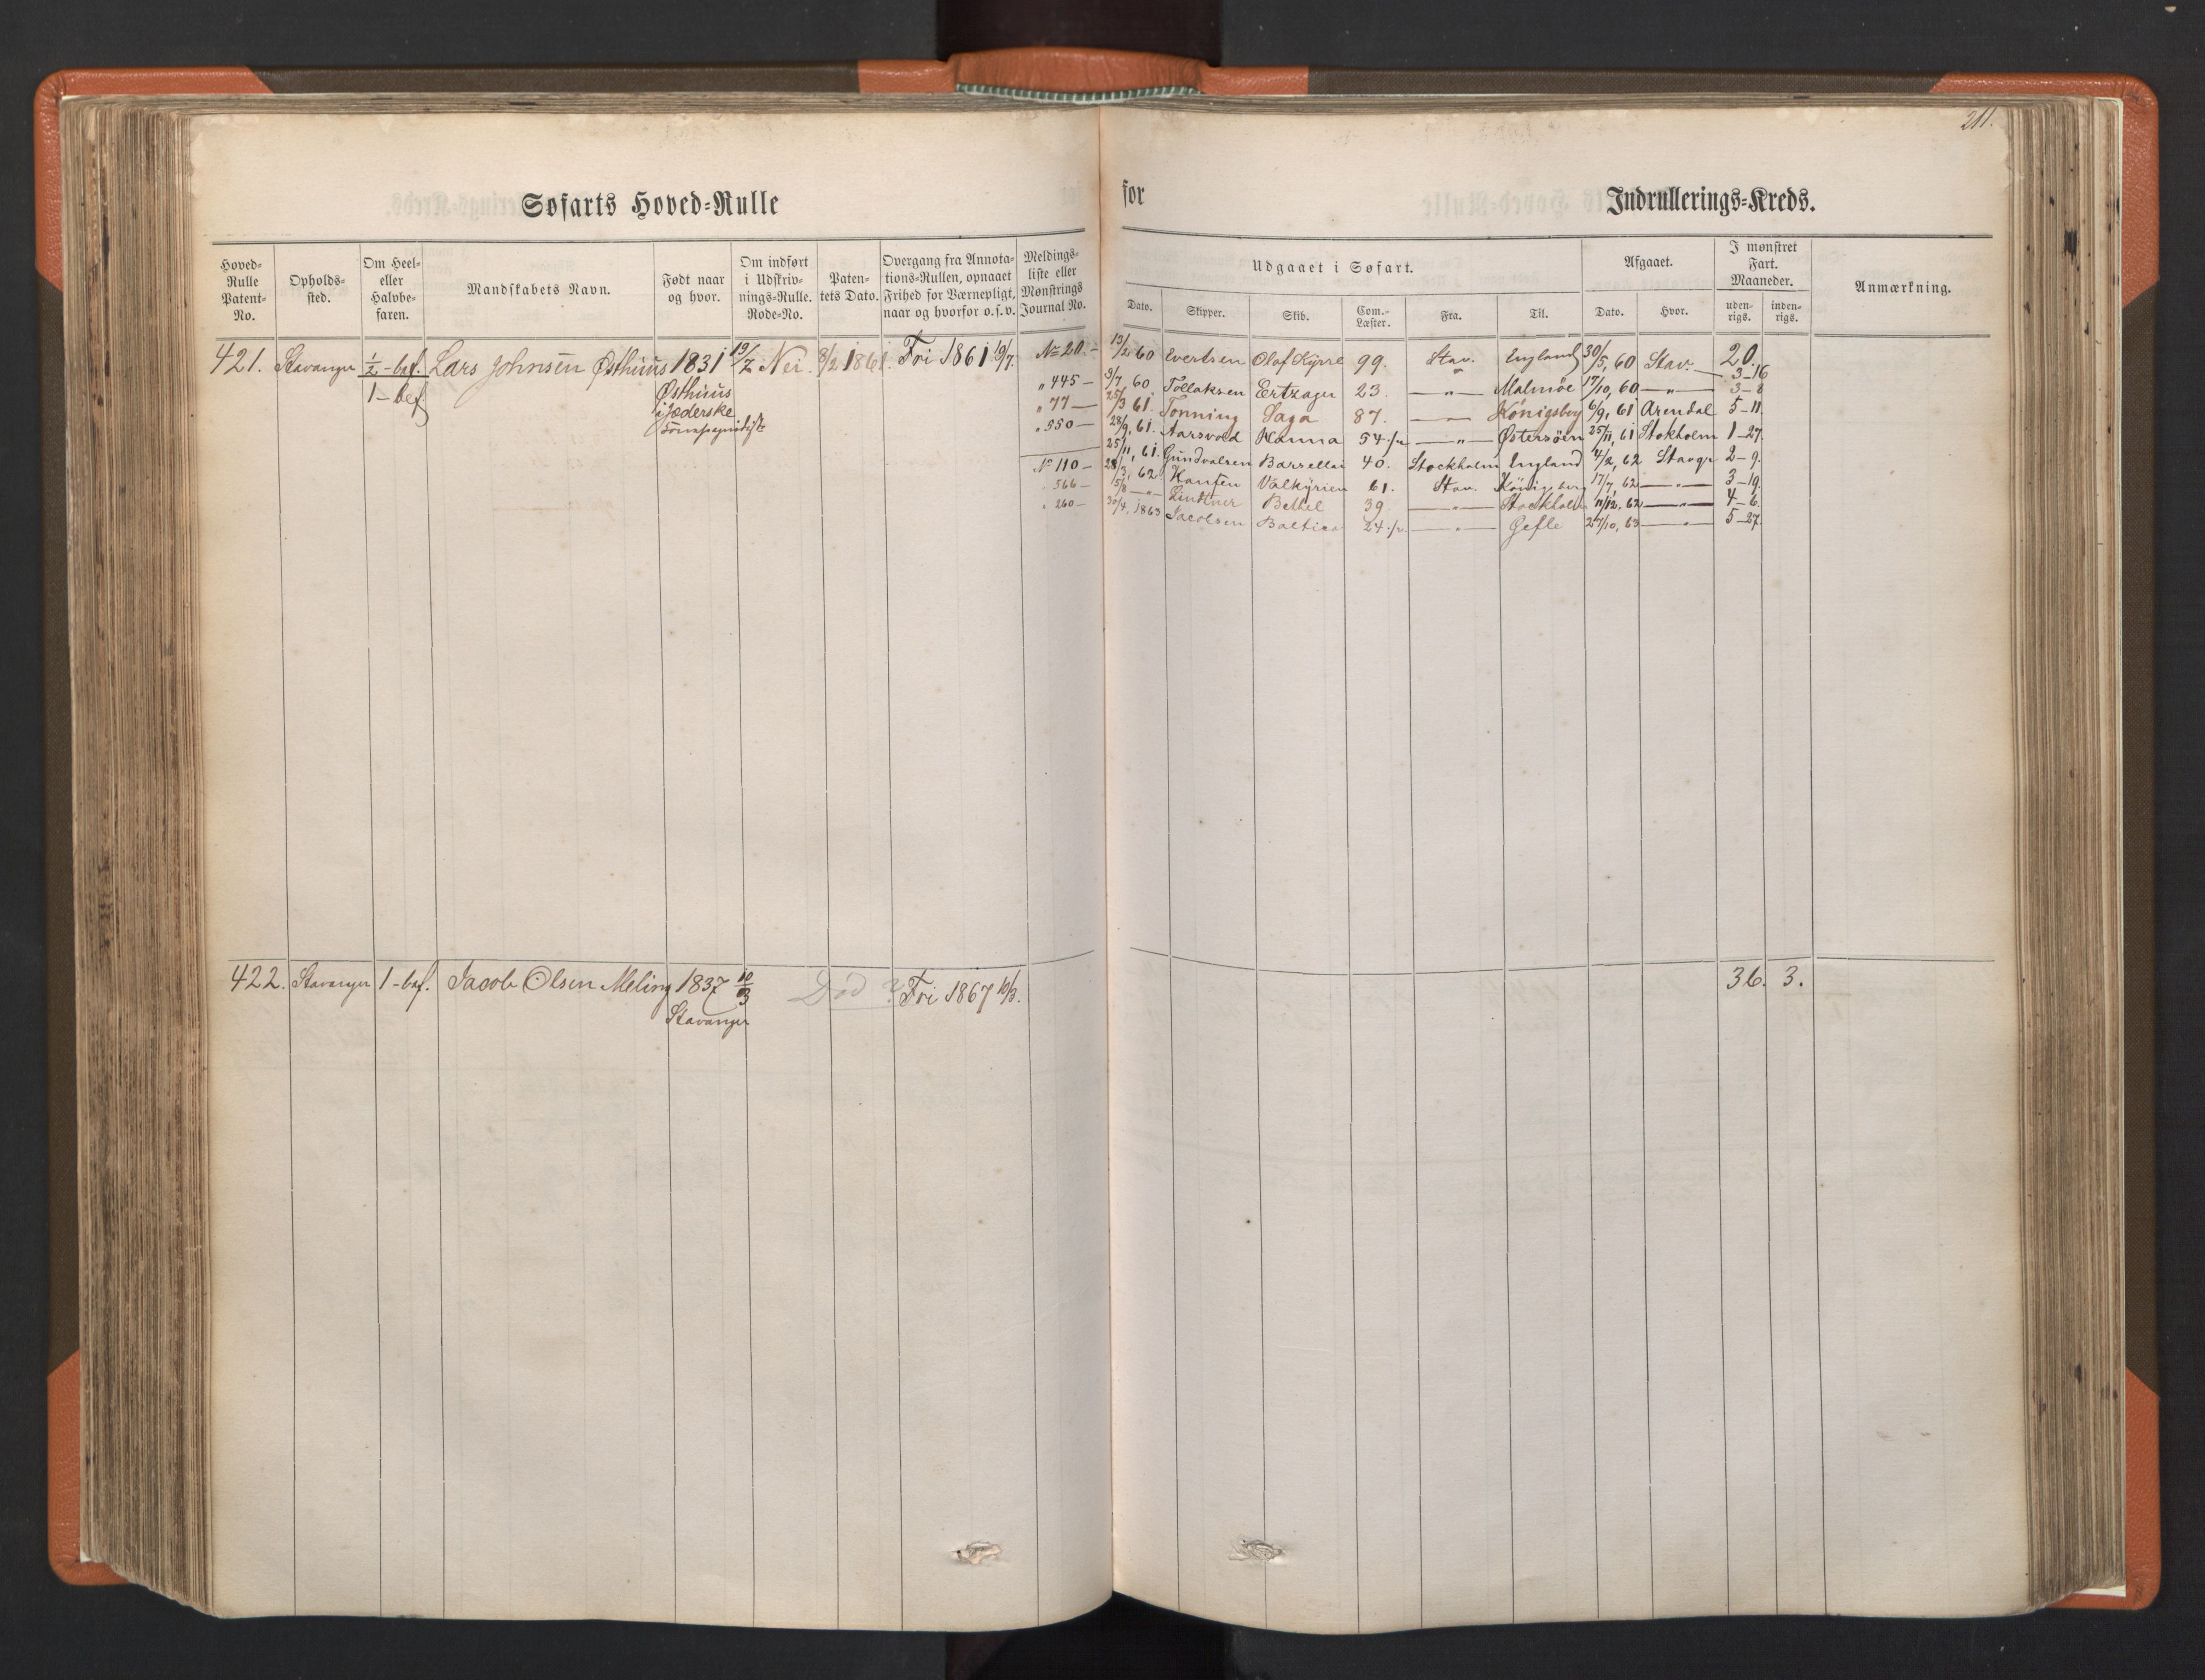 211.
Søfarts Hoved-Rulle for Indrullerings-Kreds.
Hoved-Rulle Patent-No.
Opholds-sted.
Om Heel- eller Halvbe-faren.
Mandskabets Navn.
Født naar og hvor.
Om indført i Udskriv-nings-Rulle. Rode-No.
Paten-tets Dato.
Overgang fra Annota-tions-Rullen, opnaaet Frihed for Værnepligt, naar og hvorfor o. s. v.
Meldings-liste eller Mønstrings Journal No.
Udgaaet i Søfart.
Dato. Skipper. Skib. Com.-Læster. Fra. Til.
Afgaaet.
Dato. Hvor.
I mønstret Fart. Maaneder.
uden-rigs. inden-rigs.
Anmærkning.
421. Stavanger 1/2 - bef. Lars Johnsen Østhuus 1831 19/7 Nei. 8/2 1861. Fri 1861 19/7. No 20 - 13/2 60 Evertsen Olaf Kyrre 99. Stav. England 30/5, 60 Stav: 20.
1 - bef Østhuus
i Jæderske
3-16
" 445 - 3/7, 60 Tollaksen Ertzager 23. — " — Malmöe 17/10, 60 — " — 3-8
" 77 — 25/3 61. Tonning Saga 87. — Königsberg 6/9, 61 Arendal 5-11.
" 550 — 28/9, 61. Aarsvold Hanna 54 1/2 — " — Østersöen 25/11, 61 Stokholm 1-27.
25/11, 61. Gundvalsen Barsellai 40. Stockholm England 4/2, 62 Stavgr 2-9.
No 110 — 28/3, 62 Hansen Valkyrien 61. Stav. Königsberg 17/7, 62 — " — 3-19.
" 566 — 15/8 — " — Lindtner Bethel 39 — " — Stockholm 11/12, 62 — " — 4-6.
" 260 — 30/4, 1863 Jacobsen Baltica 24 1/2. — " — Gefle 27/10, 63 — " — 5-27.
422. Stavanger 1 - bef. Jacob Olsen Meling 1837 10/3 Død ? Fri 1867 10/3. 36. 3.
Stavanger